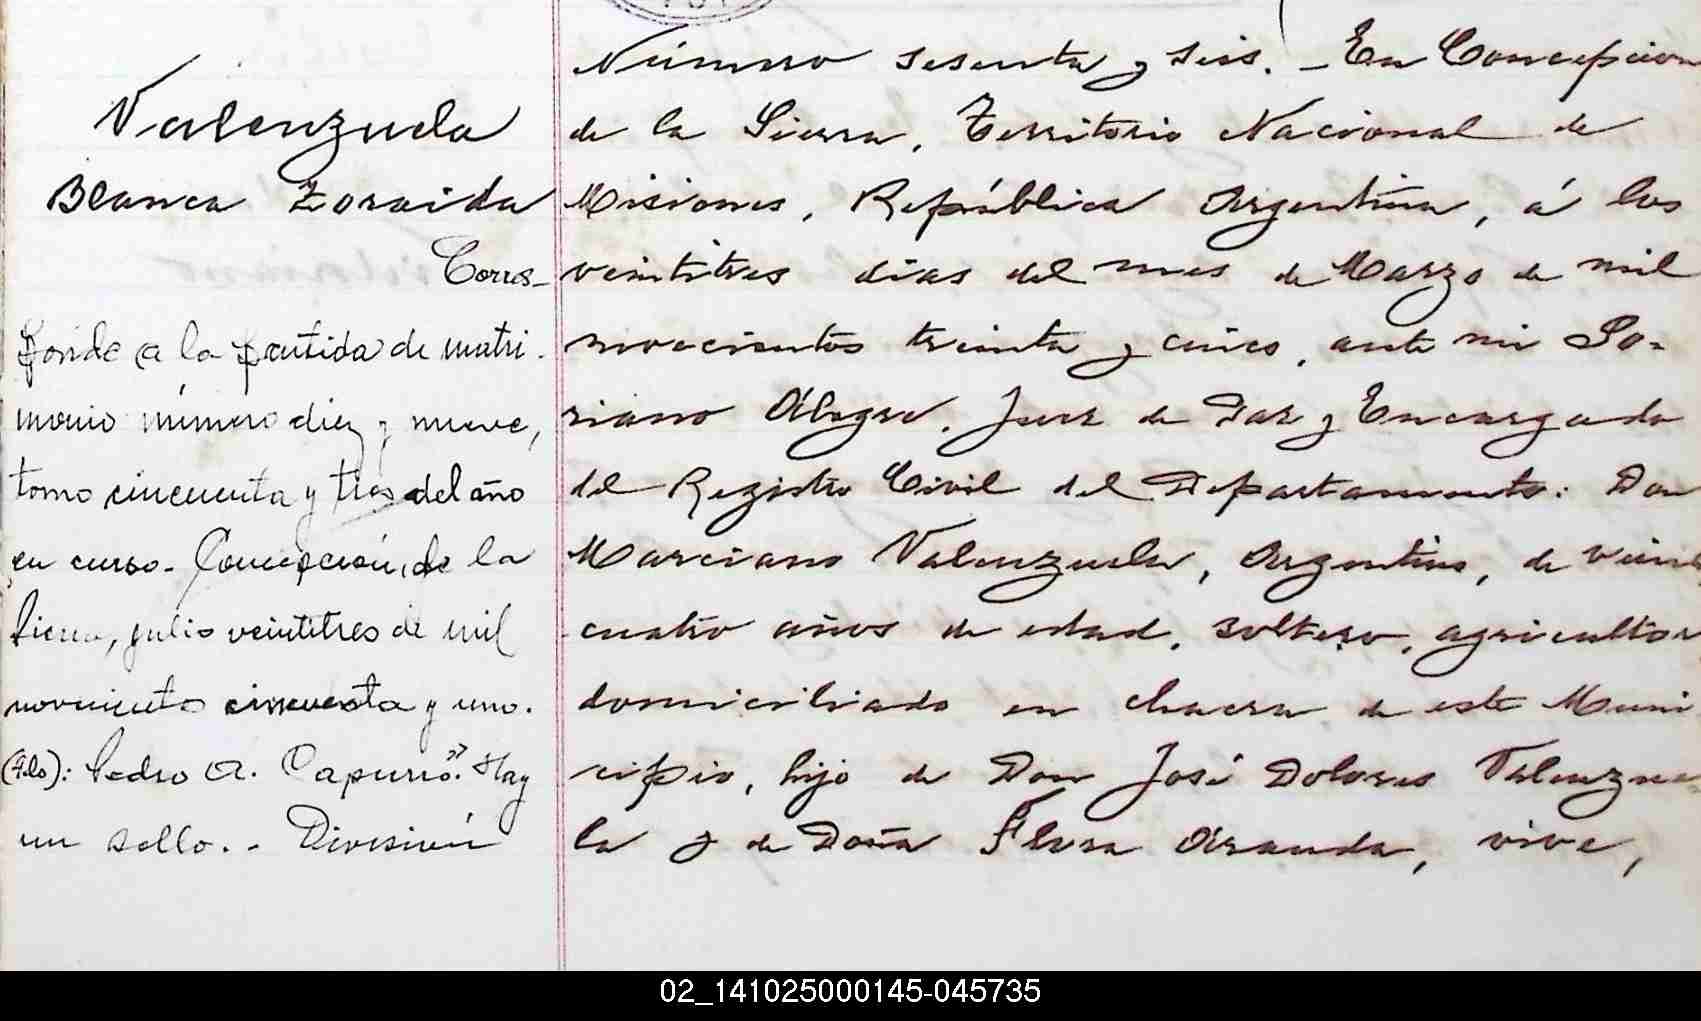 Valenzuela
Blanca Zoraida
Corres-
ponde a la partida de matri-
monio número diez y nueve,
tomo cincuenta y tres del año
en curso.- Concepción, de la
Sierra, julio veintitres de mil
novecientos cincuenta y uno.
(Fdo): Pedro A. Capurro". Hay
un sello.- División
Número sesenta y seis. - En Concepcion
de la Sierra, Territorio Nacional de
Misiones, República Argentina, á los
veintitres dias del mes de Marzo de mil
novecientos treinta y cinco, ante mi So-
riano Alegre, Juez de Paz y Encargado
del Registro Civil del Departamento: Don
Marciano Valenzuela, Argentino, de vein
cuatro años de edad, soltero, agricultor
domiciliado en chacra de este Muni
cipio, hijo de Don José Dolores Valenzue
la y de Doña Flora Aranda, vive,
02_141025000145-045735